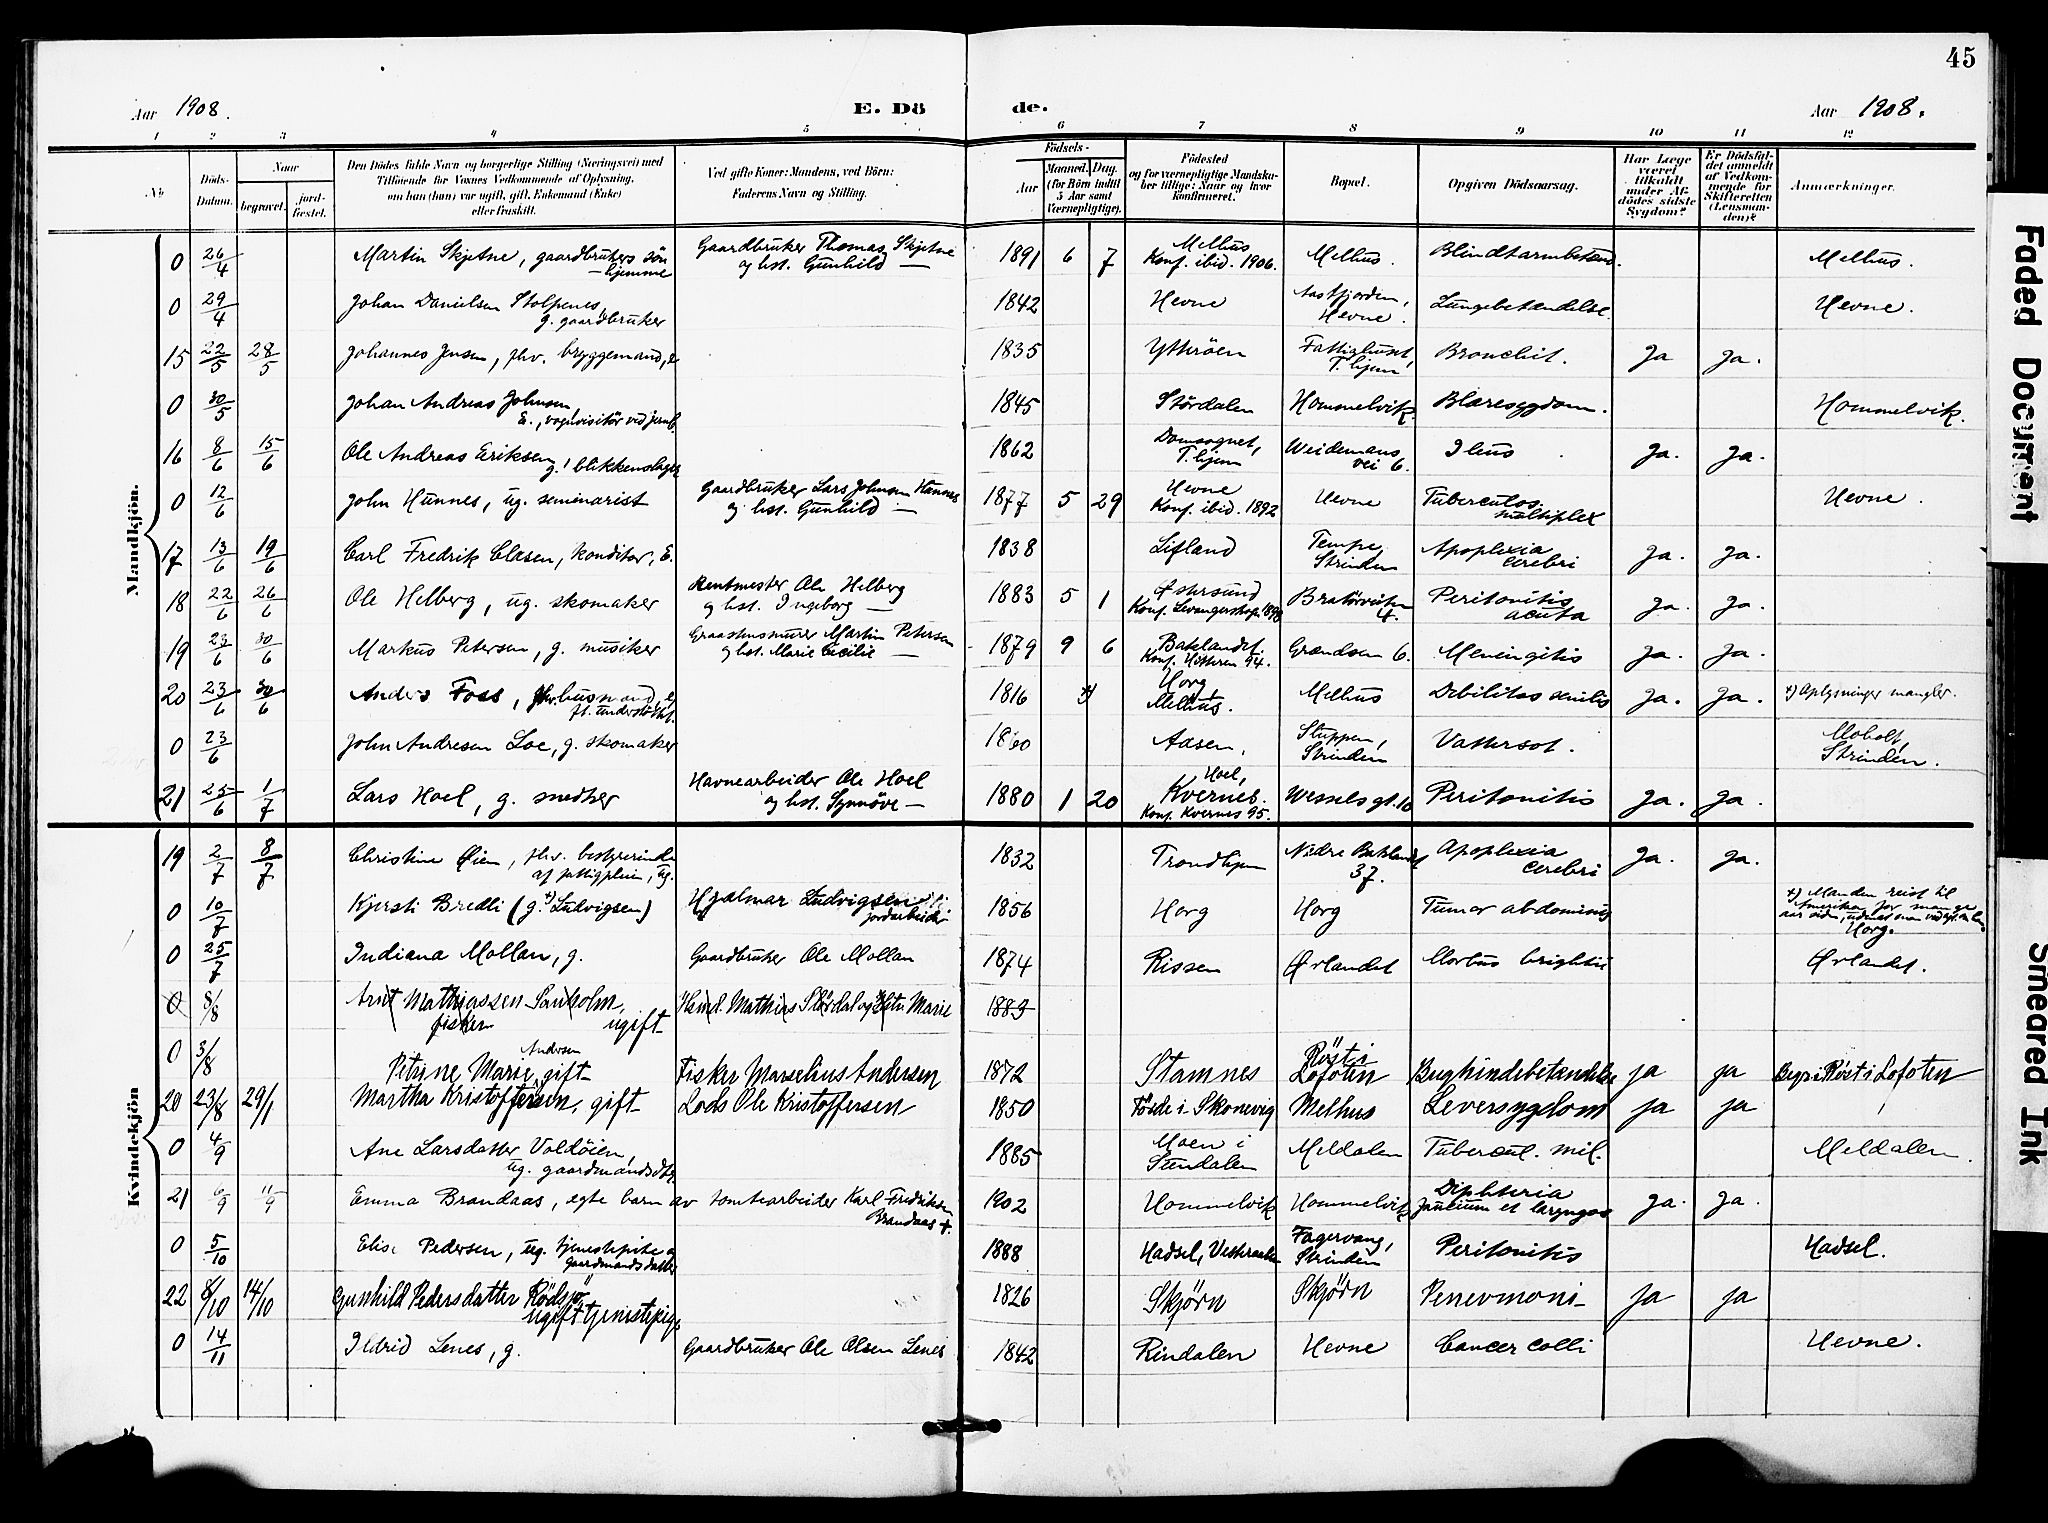 45
Aar 1908.
E. Dö
de.
Aar 1908.
1 2 3 4 5 6 7 8 9 10 11 12
No
Döds-Datum.
Naar
begravet.
jord-fæstet.
Den Dödes fulde Navn og borgerlige Stilling (Næringsvei) med
Tilföiende for Voxnes Vedkommende af Oplysning,
om han (hun) var ugift, gift, Enkemand (Enke)
eller fraskilt.
Ved gifte Koner: Mandens, ved Börn:
Faderens Navn og Stilling.
Födsels-
Aar
Maaned. Dag.
(for Börn indtil
5 Aar samt
Værnepligtige).
Födested
og for værnepligtige Mandska-
ber tillige: Naar og hvor
konfirmeret.
Bopæl.
Opgiven Dödsaarsag.
Har Læge
været
tilkaldt
under Af-
dödes sidste
Sygdom?
Er Dödsfal-
det anmeldt
af Vedkom-
mende for
Skifteretten
(Lensman-
den)?
Anmærkninger.
Mandkjön.
0 26/4 Martin Skjetne, gaardbrukers sön hjemme Gaardbruker Thomas Skjetne og hst. Gunhild — 1891 6 7 Melhus Konf. ibid. 1906. Melhus. Blindtarmbetænd. Melhus.
0 29/4 Johan Danielsen Stolpenes, g. gaardbruker 1842 Hevne Aastfjorden, Hevne. Lungebetændelse. Hevne.
15 22/5 28/5 Johannes Jensen, fhv. bryggemand, e 1835 Ytterøen Fattighuset, T.hjem Bronchit. Ja Ja.
0 30/5 Johan Andreas Johnsen E., vognvisitör ved jernb. 1845 Stördalen Hommelvik. Blæresygdom. Hommelvik.
16 8/6 15/6 Ole Andreas Eriksen, g. blikkenslager 1862 Domsognet, T.hjem Weidemans vei 6. Ileus. Ja. Ja.
0 12/6 John Hunnes, ug. seminarist Gaardbruker Lars Johnsen Hunnes og hst. Gunhild — 1877 5 29 Hevne Konf. ibid. 1892 Hevne Tuberculos. multiplex Hevne.
17 13/6 19/6 Carl Fredrik Clasen, konditor, E. 1838 Lifland Tempe, Strinden Apoplexia cerebri Ja. Ja.
18 22/6 26/6 Ole Helberg, ug. skomaker Rentmester Ole Helberg og hst. Ingeborg — 1883 5 1 Østersund Konf. Levanger 4. Peritonitis acuta Ja. Ja.
19 23/6 30/6 Markus Petersen, g. musiker Martin Petersen og hst. Marie Cecilie — 1879 9 6 Baklandet. Konf. Hitteren 94. Grændsen 6. Meningitis Ja. Ja.
20 23/6 30/6 Anders Foss, fhv. husmand, e, ft. understöttet. 1816 x) Horg, Melhus. Melhus Debilitas senilis Ja. Ja. x) Oplysninger mangler.
0 23/6 John Andresen Loe, g. skomaker 1860 Aasen, Sluppen, Strinden Vattersot. Moholt, Strinden.
21 25/6 1/7 Lars Hoel, g. smed Havnearbeider Ole Hoel og hst. Synnöve — 1880 1 20 Hoel, Kvernes. Konf. Kvernes 95. Wessels gt. 10 Peritonitis Ja. Ja.
Kvindekjön
19 2/7 8/7 Christine Øien, fhv. bestyrerinde af fattigpleien, ug. 1832 Trondhjem Nedre Bakland 37. Apoplexia cerebri Ja. Ja.
0 10/7 Kjersti Bredli (g. x) Ludvigsen) Hjalmar Ludvigsen jordarbeider 1856 Horg Horg Tumor abdominis x) Manden reist til Amerika for mange aar siden, Horg.
0 25/7 Indiana Mollan, g. Gaardbruker Ole Mollan 1874 Rissen Ørlandet Morbus brightii Ørlandet.
0 8/8 Arnt Mathiassen Sanholm, fisker ugift Husmd. Mathias Stördal og Hstr. Marie 1889
0 3/8 Petrine Marie Andersen, gift Fisker Marselius Andersen 1872 Stamnes Röst i Lofoten Bughindebetændelse ja ja Begr. i Röst i Lofoten
20 23/8 29/1 Martha Kristoffersen, gift Lods Ole Kristoffersen 1850 Förde i Skonevig Melhus Leversygdom ja ja
0 4/9 Ane Larsdatter Voldöien, ug. gaardmandsdtr. 1885 Moen i Sundalen Meldalen Tubercul. mil. Meldalen.
21 6/9 11/9 Emma Brandaas, egte barn av tomtearbeider Karl Fredriksen Brandaas + 1902 Hommelvik Hommelvik Diphteria faucium et laryngos Ja. Ja.
0 5/10 Elise Pedersen, ug. tjenestepike og gaardmandsdatter 1888 Hadsel, Vesteraalen Fagervang, Strinden Peritonitis Hadsel.
22 8/10 14/10 Gunhild Pedersdatter Rödsjö, ugift tjenestepige 1826 Skjörn Skjörn Penevmoni Ja ja
0 14/11 Ildrid Lenes, g. Gaardbruker Ole Olsen Lenes 1842 Rindalen Hevne Cancer colli Hevne.
Faded Document
Smeared Ink